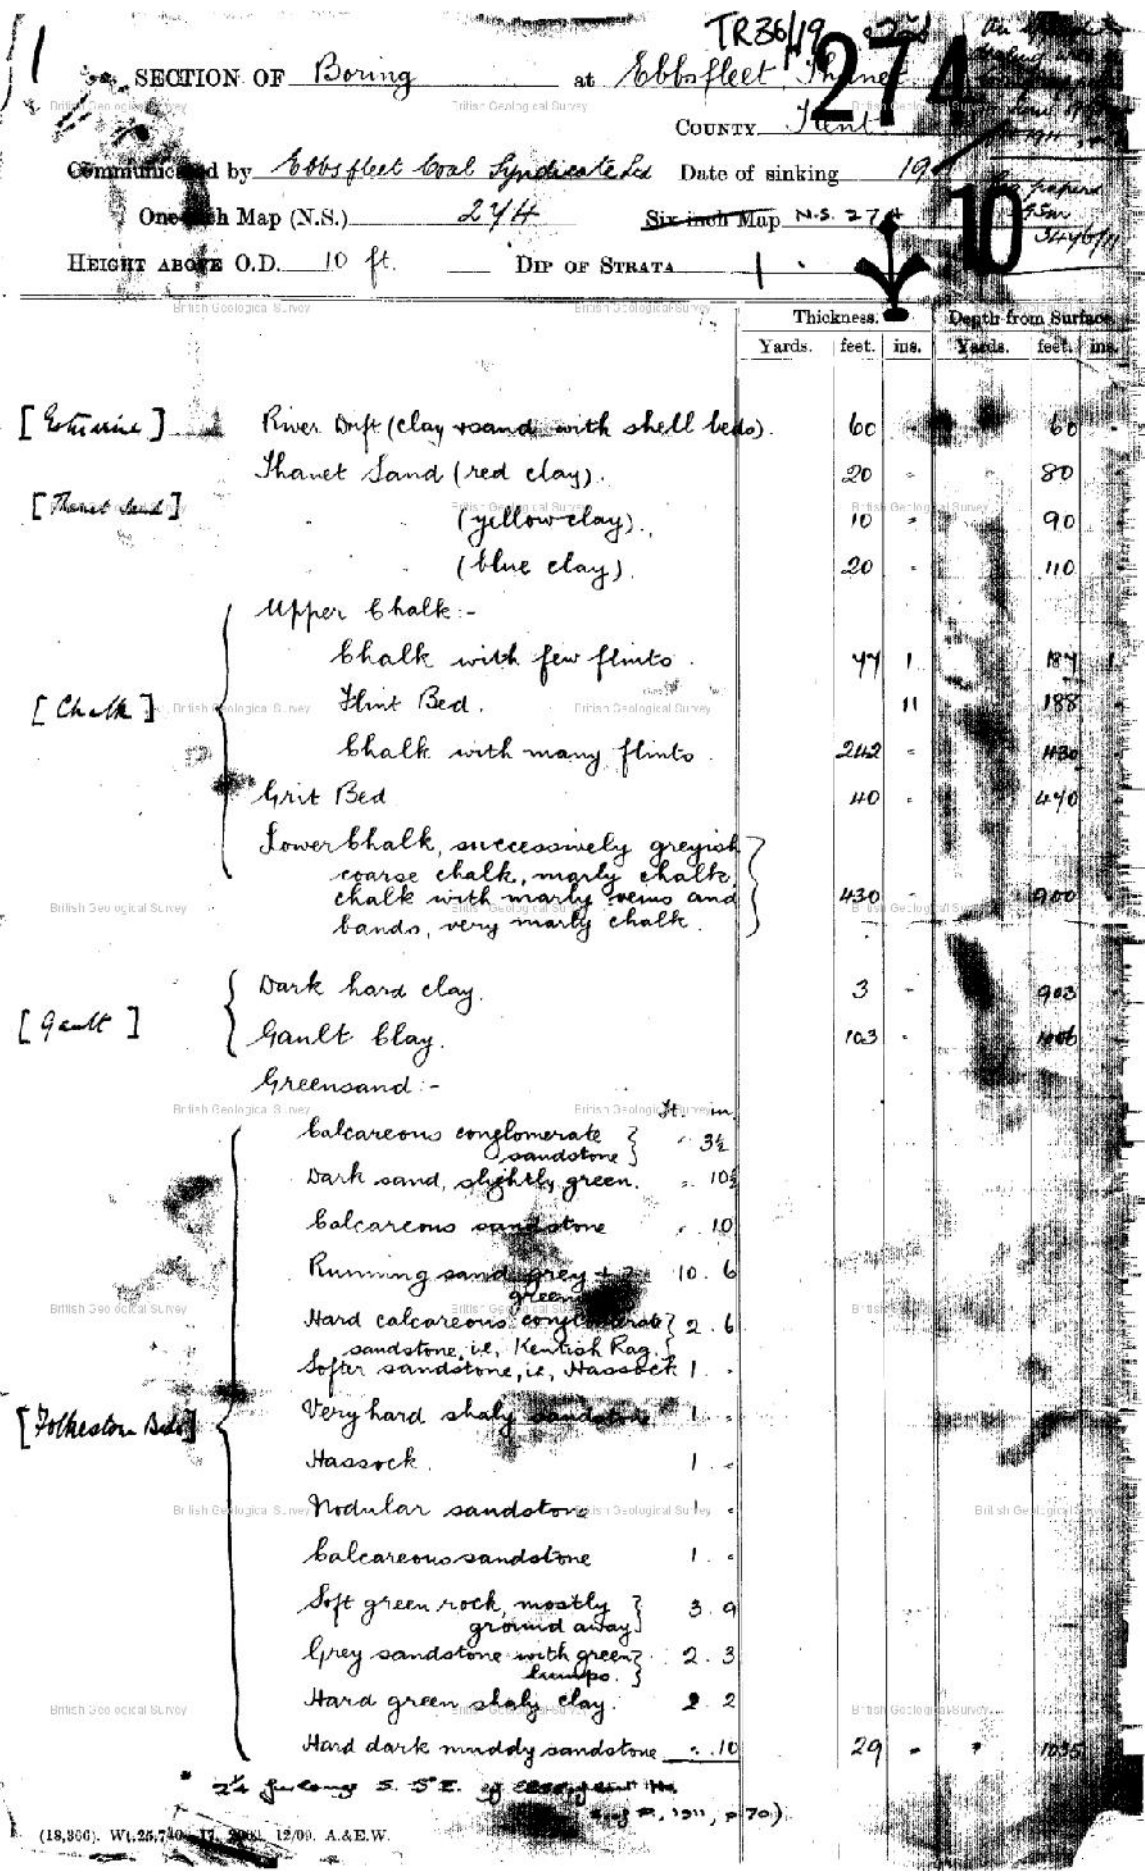 TR36/19
1
SECTION OF Boring at Ebbsfleet, Thanet
274
COUNTY Kent
Communicated by Ebbsfleet Coal Syndicate Ltd Date of sinking 19
One-inch Map (N.S.) 274 Six-inch Map N.S. 274
10
HEIGHT ABOVE O.D. 10 ft. DIP OF STRATA
Thickness. Depth from Surface.
Yards. feet. ins. Yards. feet. ins.
[Estuarine] River Drift (clay & sand with shell beds). 60 - 60 -
Thanet Sand (red clay). 20 - 80
[Thanet Sand] " (yellow clay). 10 - 90
" (blue clay). 20 - 110
Upper Chalk:-
Chalk with few flints. 77 1 187 1
[Chalk] Flint Bed. 11 188
Chalk with many flints. 242 - 430
Grit Bed 40 - 470
Lower Chalk, successively greyish
coarse chalk, marly chalk,
chalk with marly veins and 430 900
bands, very marly chalk.
Dark hard clay. 3 - 903
[Gault] Gault Clay. 103 - 1006
Greensand:-
Ft. in.
Calcareous conglomerate
sandstone } " 3½
Dark sand, slightly green. " 10½
Calcareous sandstone " 10
Running sand grey +
green 10. 6
Hard calcareous conglomerate } 2. 6
sandstone, i.e, Kentish Rag.
Softer sandstone, i.e, Hassock 1. -
[Folkestone Beds] Very hard shaly sandstone 1. -
Hassock. 1. -
Nodular sandstone 1. -
Calcareous sandstone 1. -
Soft green rock, mostly
ground away } 3. 9
Grey sandstone with green
lumps. } 2. 3
Hard green shaly clay. 2. 2
Hard dark muddy sandstone ". 10 29 - 1035
2¼ furlongs S. 5°E. of
1911, p 70).
(18,366). Wt. 25,740 12/09. A.&E.W.
British Geological Survey